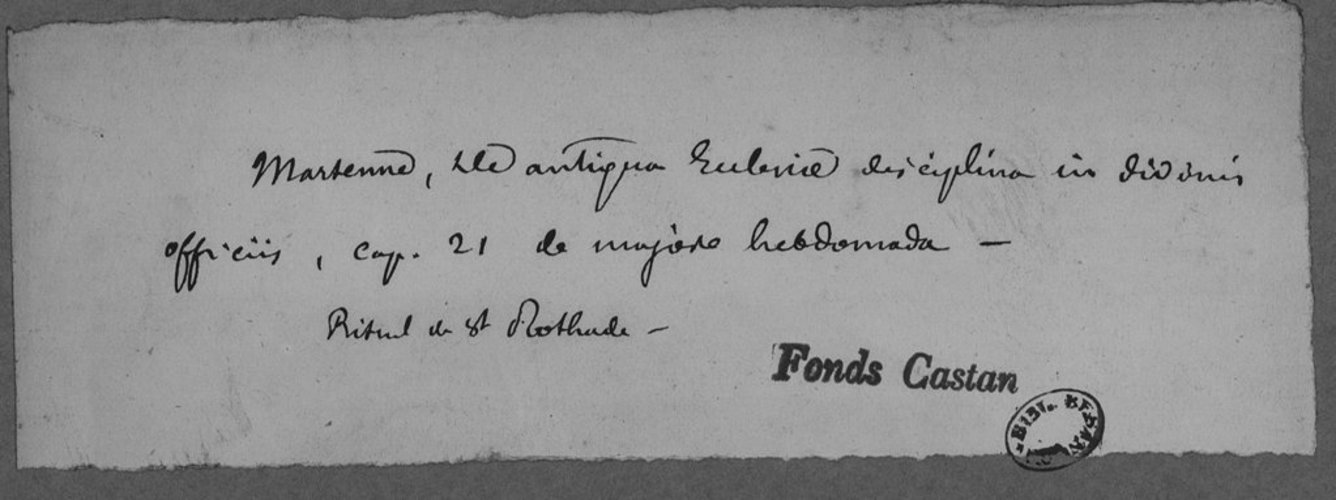 Martenne, De antiqua Ecclesiæ disciplina in divinis
officiis, cap. 21 de majore hebdomada —
Rituel de St Rothade —
Fonds Castan
BIBL. BESAN